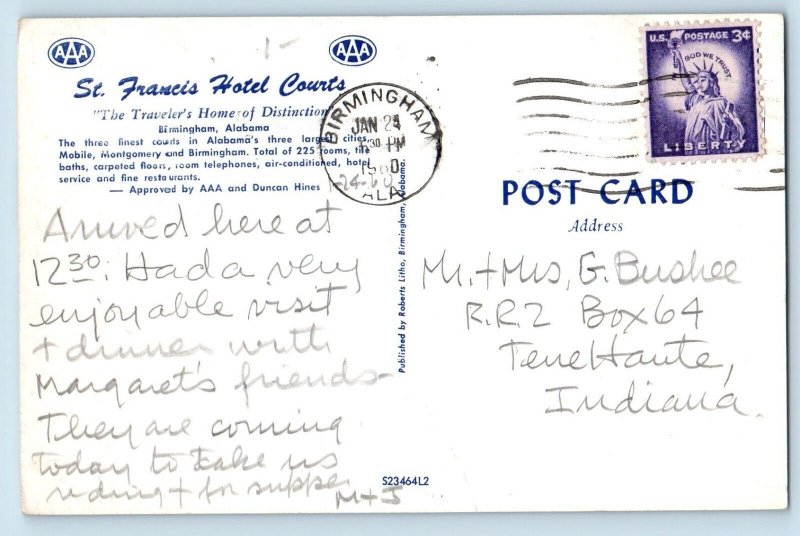 AAA AAA
St. Francis Hotel Courts
"The Traveler's Home of Distinction"
Birmingham, Alabama
The three finest courts in Alabama's three largest cities,
Mobile, Montgomery and Birmingham. Total of 225 rooms, tile
baths, carpeted floors, room telephones, air-conditioned, hotel
service and fine restaurants.
— Approved by AAA and Duncan Hines
1-
Arrived here at
12 30: Had a very
enjoyable visit
+ dinner with
Margaret's friends-
They are coming
today to take us
riding + for supper
M+J
Published by Roberts Litho, Birmingham, Alabama.
S23464L2
BIRMINGHAM
JAN 24
30 PM
1960
ALA.
1-24-60
U.S. POSTAGE 3¢
IN GOD WE TRUST
LIBERTY
POST CARD
Address
Mr. + Mrs. G. Bushee
R.R.2 Box 64
Terre Haute,
Indiana.